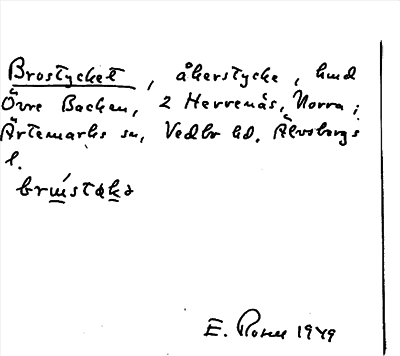 Brostycket, åkerstycke, hmd
Övre Backen, 2 Herrenäs, Norra;
Ärtemarks sn, Vedbo hd, Älvsborgs
l.
E. Rosell 1949